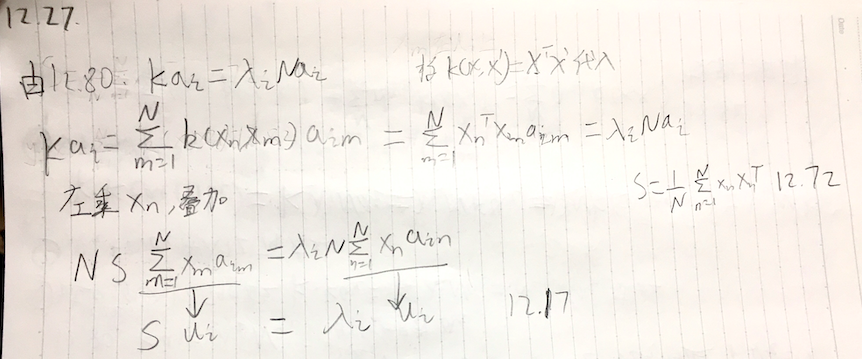 12.27.
由12.80. Kaᵢ = λᵢNaᵢ 将 k(x,x')=xᵀx' 代入
Kaᵢ = Σ_{m=1}^{N} k(xₙ,xₘ) aᵢₘ = Σ_{m=1}^{N} xₙᵀxₘaᵢₘ = λᵢNaᵢ
S = 1/N Σ_{n=1}^{N} xₙxₙᵀ 12.72
左乘 xₙ, 叠加
NS Σ_{m=1}^{N} xₘaᵢₘ = λᵢN Σ_{n=1}^{N} xₙaᵢₙ
↓ ↓
S uᵢ = λᵢ uᵢ 12.17